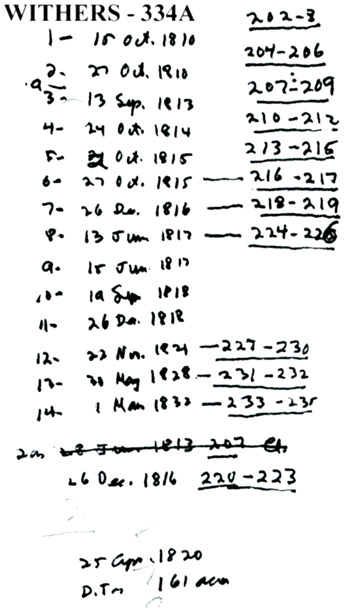 WITHERS - 334A
202-3
1 - 15 Oct. 1810
204-206
2 - 27 Oct. 1810
207-209
3 - 13 Sep. 1813
210-212
4 - 24 Oct. 1814
213-215
5 - Oct. 1815
6 - 27 Oct. 1815 — 216-217
7 - 26 De. 1816 — 218-219
8 - 13 Jun 1817 — 224-226
9 - 15 Jun. 1817
10 - 19 Sep 1818
11 - 26 De. 1818
12 - 22 Nov. 1821 — 227-230
13 - 30 May 1828 — 231-232
14 - 1 Mar 1832 — 233-235
28 Jun 1813 207
26 Dec. 1816 220-223
25 Apr. 1820
161